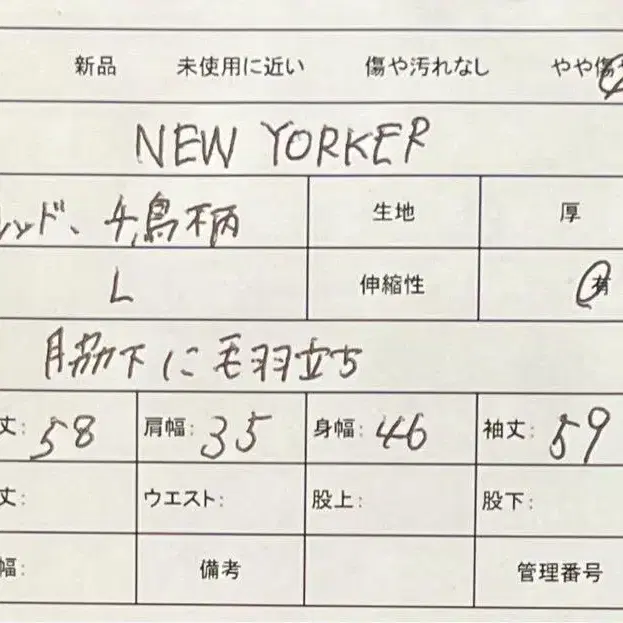 新品 未使用に近い 傷や汚れなし やや傷
NEW YORKER
ンド、千鳥柄 生地 厚
L 伸縮性 有
脇下に毛羽立ち
丈: 58 肩幅: 35 身幅: 46 袖丈: 59
丈: ウエスト: 股上: 股下:
幅: 備考 管理番号